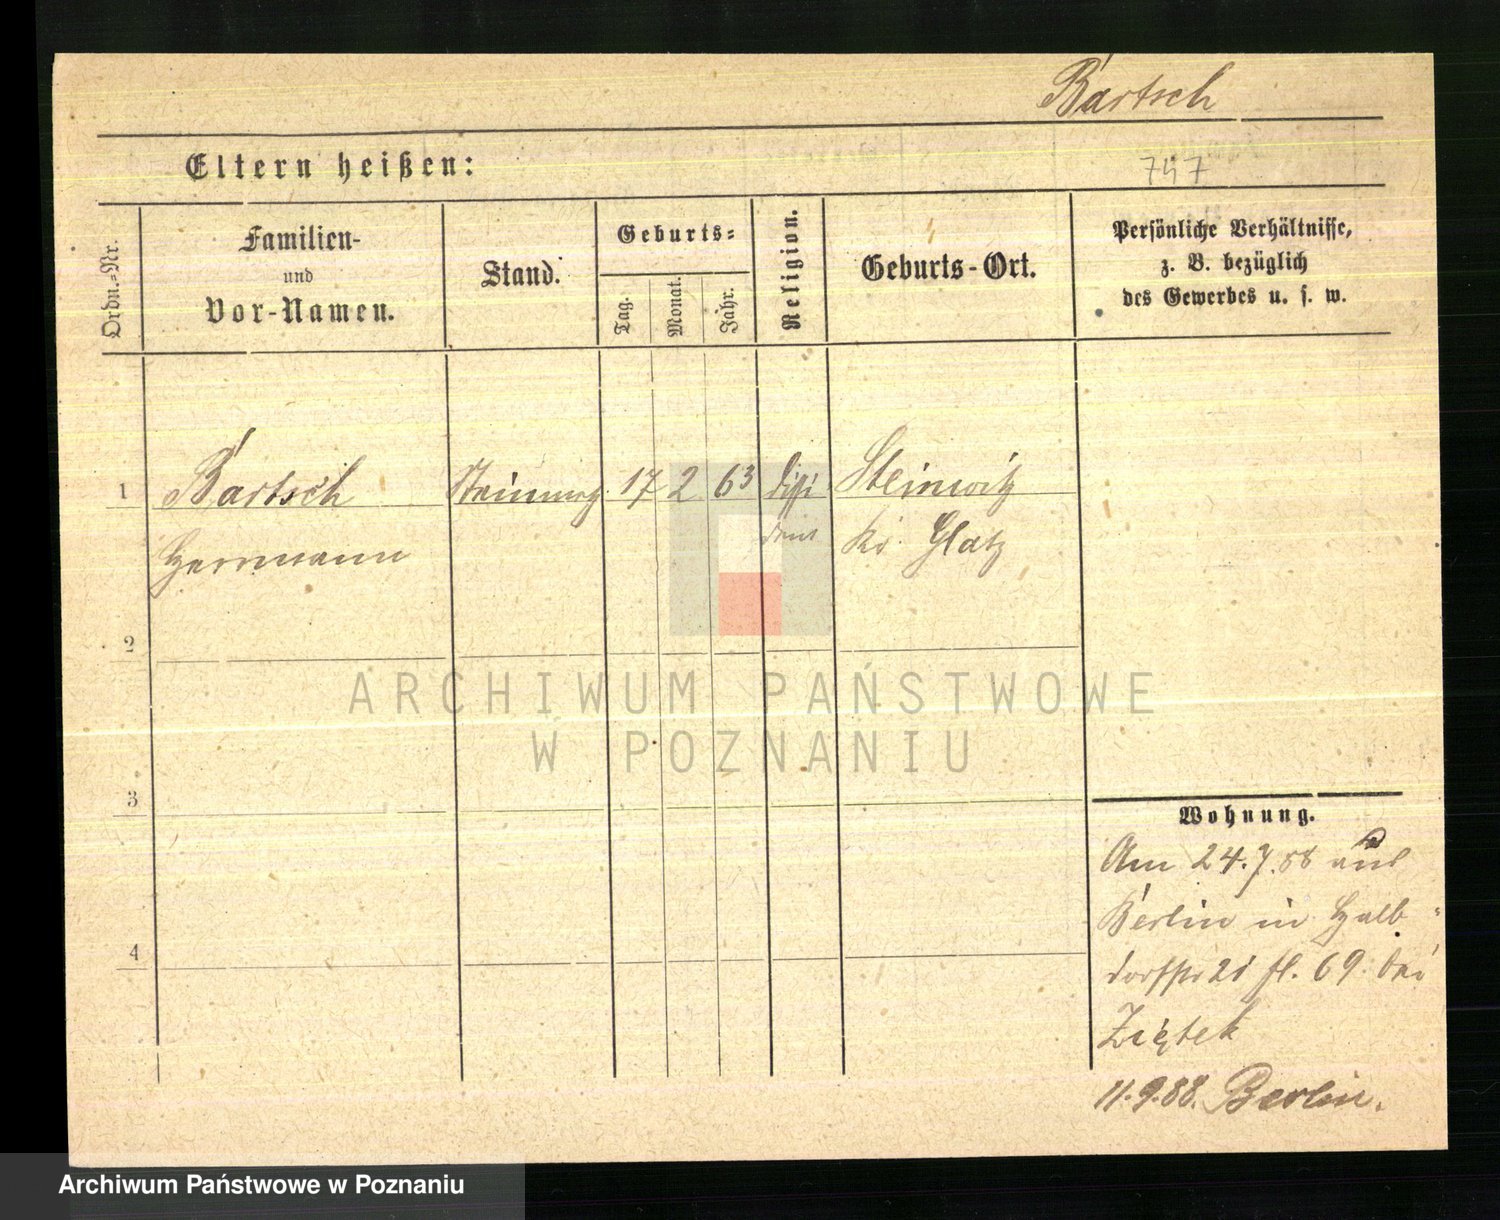 Bartsch
Eltern heißen:
747
Ordn.-Nr.
Familien-
und
Vor-Namen.
Stand.
Geburts-
Tag.
Monat.
Jahr.
Religion.
Geburts-Ort.
Persönliche Verhältnisse,
z. B. bezüglich
des Gewerbes u. s. w.
1
Bartsch
17
2
63
dissi
Steinwitz
Herrmann
dent
Kr. Glatz
2
ARCHIWUM PAŃSTWOWE
W POZNANIU
3
Wohnung.
Am 24.7.88 aus
Berlin in Halb-
dorfstr 21 fl. 69 bei
Ziętek
4
11.9.88. Berlin.
Archiwum Państwowe w Poznaniu